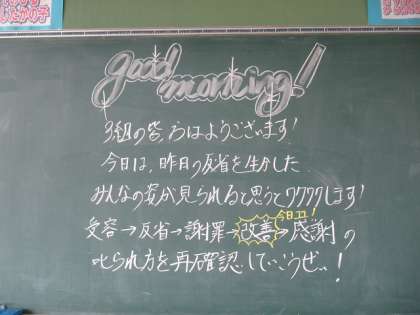 good morning!
3組の皆、おはようございます!
今日は、昨日の反省を生かした
みんなの姿が見られると思うとワクワクします!
今日ココ!
受容→反省→謝罪→改善→感謝の
叱られ方を再確認していこうぜぃ!